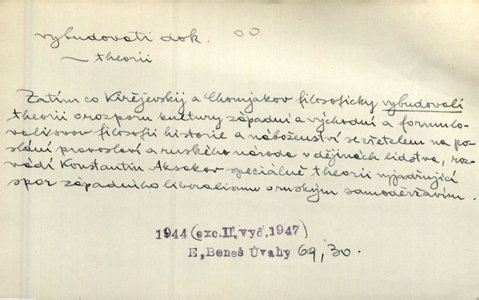 vybudovati dok. oo
— theorii
Zatím co Kirějevskij a Chomjakov filosoficky vybudovali
theorii o rozporu kultury západní a východní a formulo-
vali svou filosofii historie a náboženství se zřetelem na po-
slání pravoslaví a ruského národa v dějinách lidstva, roz-
vádí Konstantin Aksakov speciálně theorii vyjadřující
spor západního liberalismu s ruským samoděržavím.
1944 (exc. II. vyd. 1947)
E. Beneš Úvahy 69, 30.